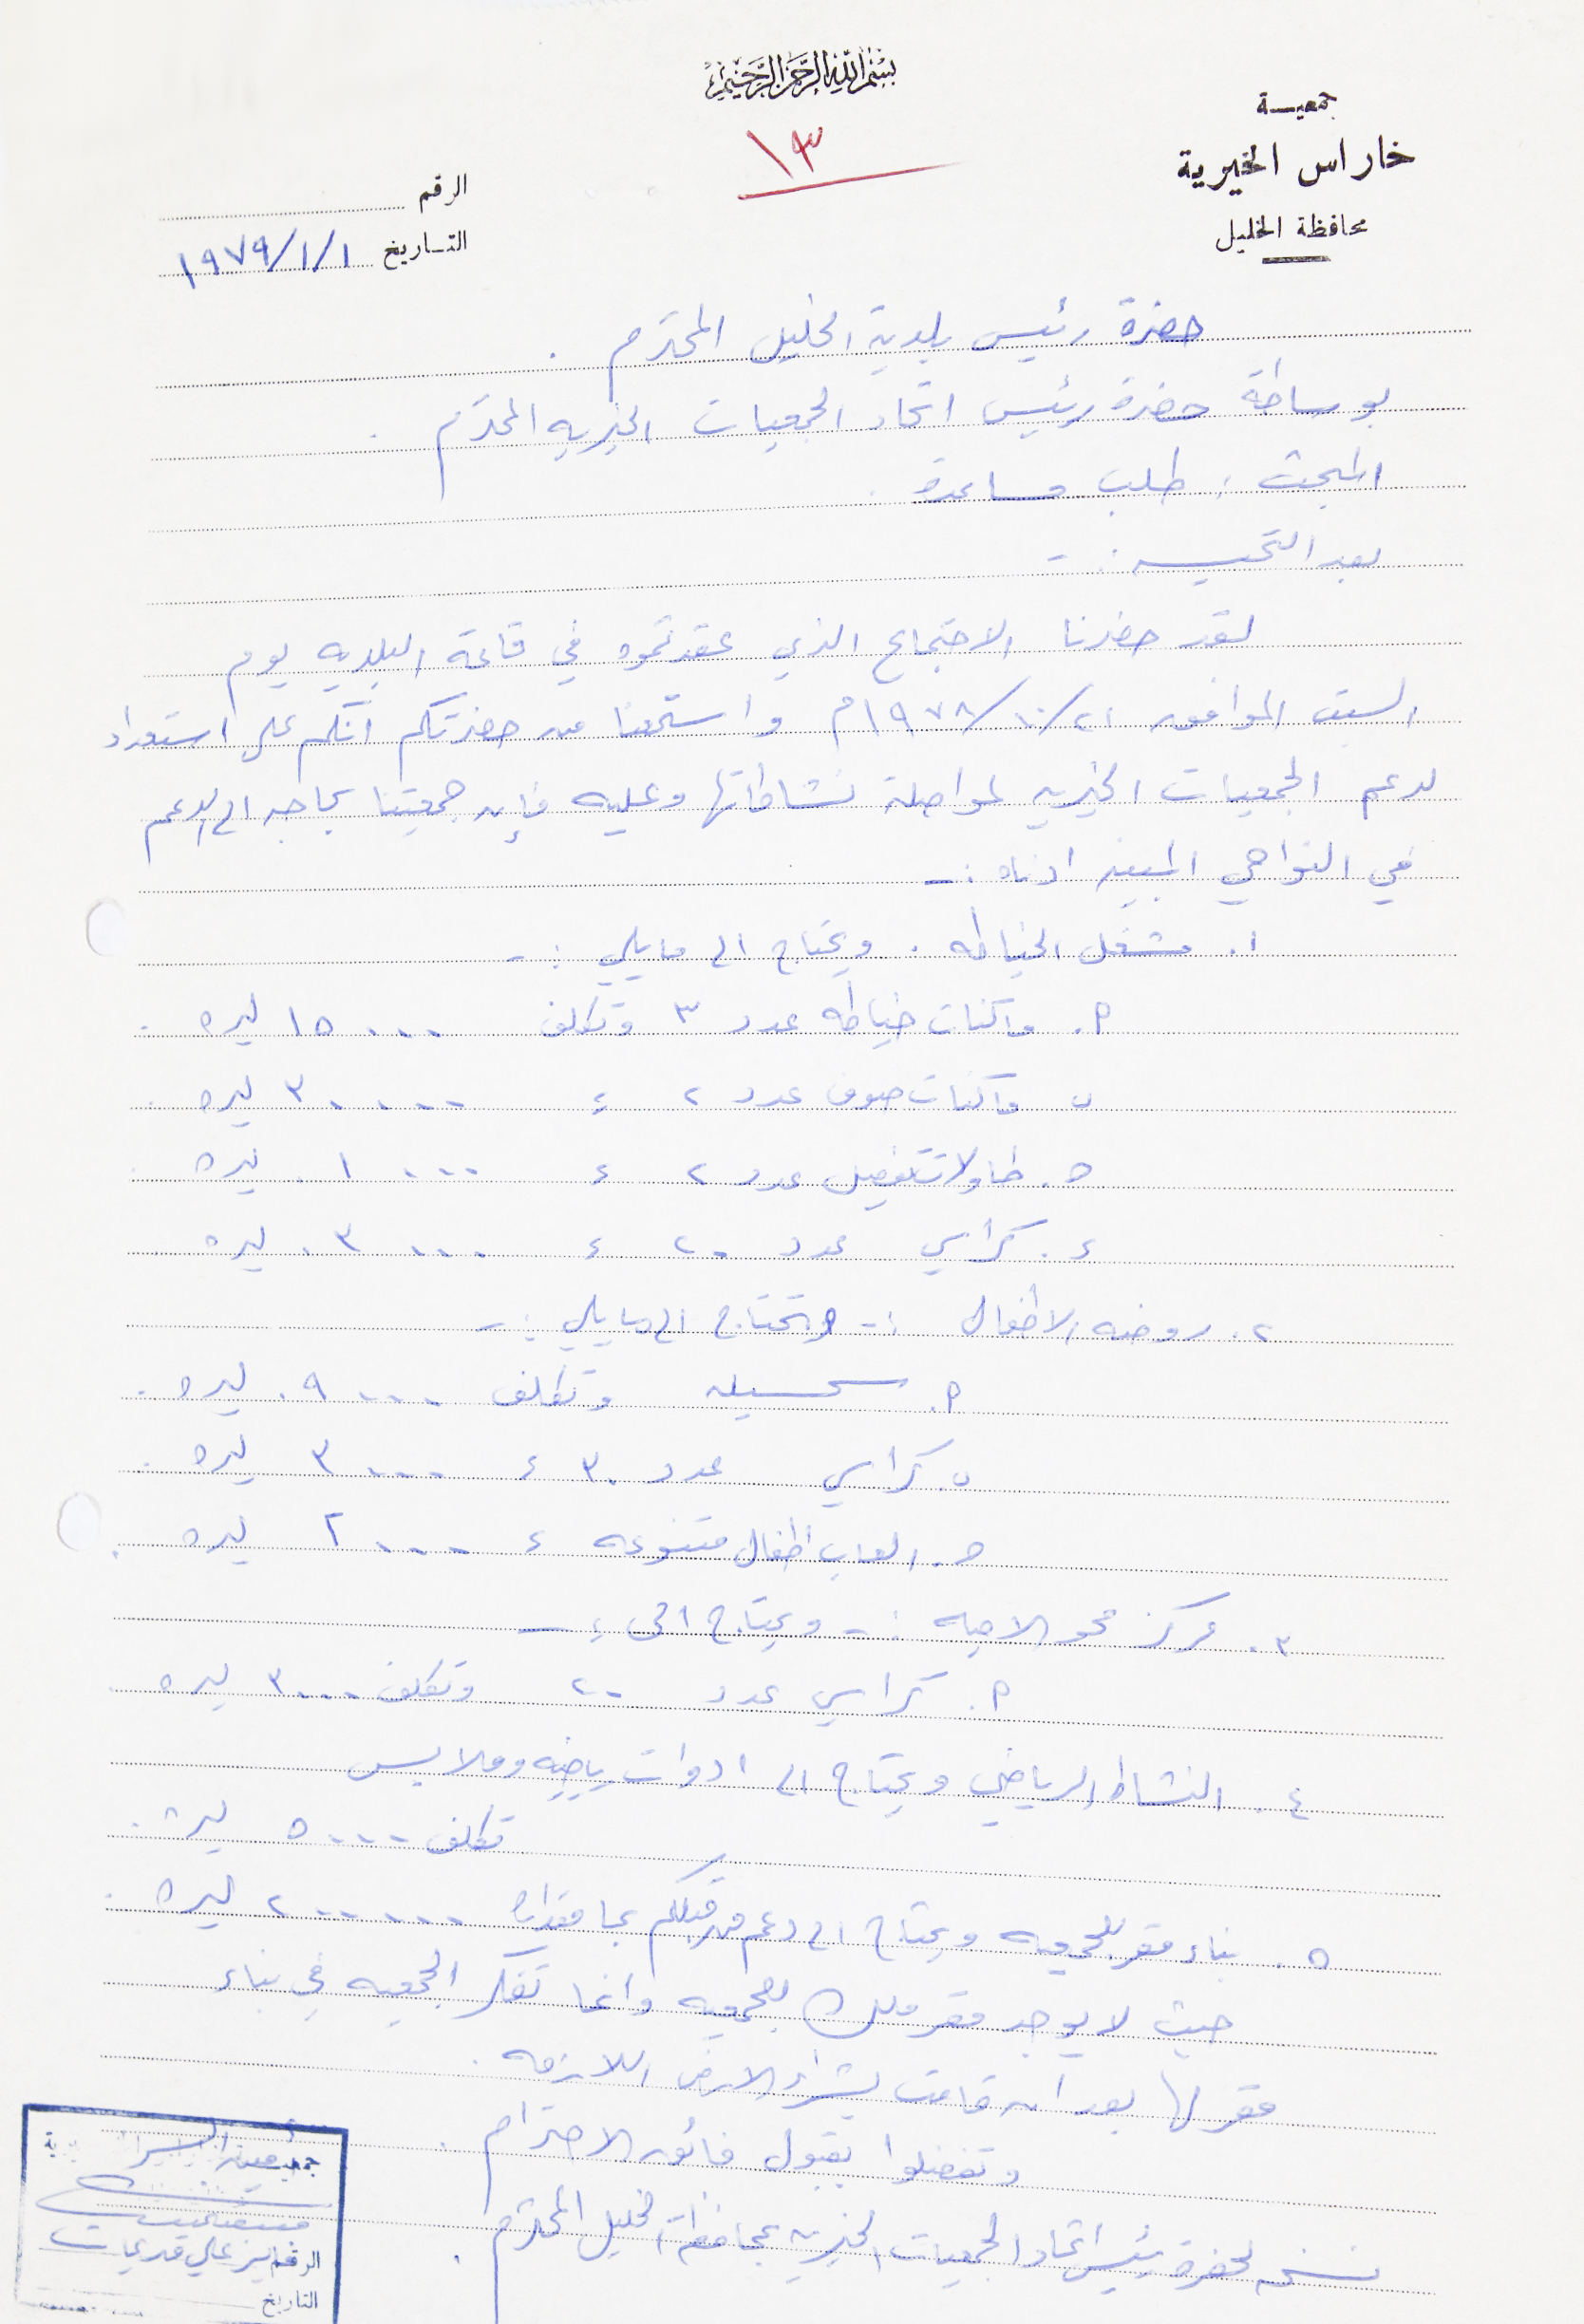 بسم الله الرحمن الرحيم
جمعيـــة
خاراس الخيرية
محافظة الخليل
١٣
الرقم
التـاريخ ١٩٧٩/١/١
حضرة رئيس بلدية الخليل المحترم .
بوساطة حضرة رئيس اتحاد الجمعيات الخيريه المحترم .
المبحث : طلب مساعدة .
بعد التحيــه : -
لقد حضرنا الاجتماع الذي عقدتموه في قاعة البلديه يوم
السبت الموافق ١٩٧٨/١٠/٢١م واستمعنا من حضرتكم انكم على استعداد
لدعم الجمعيات الخيريه لمواصلة نشاطاتها وعليه فإن جمعيتنا بحاجه الى الدعم
في النواحي المبينه ادناه :-
١. مشغل الخياطه . ويحتاج الى مايلي :-
P. ماكنات خياطه عدد ٣ وتكلف ١٥٠٠٠ ليره .
ب ماكنات صوف عدد ٢ ء ٣٠٠٠٠ ليره .
ح. طاولات تفصيل عدد ٢ ء ١٠٠٠ . ليره .
ء. كراسي عدد ٢٠ ء ٣٠٠٠ . ليره .
٢. روضه الاطفال :- وتحتاج الى مايلي :-
P. سحسيله وتكلف ٩٠٠٠ . ليره .
ب. كراسي عدد ٣٠ ء ٣٠٠٠ ليره .
ح. العاب اطفال متنوعه ء ٢٠٠٠ ليره .
٣. مركز محو الاميه :- ويحتاج الى :-
P. كراسي عدد ٢٠ وتكلف ٣٠٠٠ ليره .
٤. النشاط الرياضي ويحتاج الى ادوات رياضيه وملابس
تكلف ٥٠٠٠ ليرة .
٥. بناء مقر للجمعيه ويحتاج الى دعم من قبلكم بما مقداره ٢٠٠٠٠٠ ليره .
حيث لا يوجد مقر ملك للجمعيه وانما تفكر الجمعيه في بناء
مقر لها بعد ان قامت بشراء الارض اللازمه .
وتفضلوا بقبول فائق الاحترام .
نسخه لحضرة رئيس اتحاد الجمعيات الخيريه بمحافظة الخليل المحترم .
أمين السر
الرقم
التاريخ